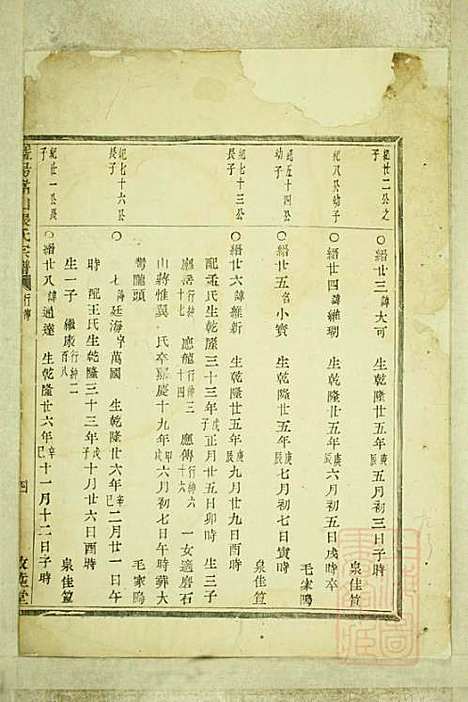 紀廿二公之
子
○縉廿三諱大可 生乾隆廿五年庚辰五月初三日子時
泉佳笪
紀八公幼子
○縉廿四諱維瑚 生乾隆廿五年庚辰六月初五日戌時卒
毛家鴫
紀五十四公
幼子
○縉廿五官小寳 生乾隆廿五年庚辰七月初七日寅時
泉佳笪
紀七十三公
長子
○縉廿六諱維新 生乾隆廿五年庚辰九月廿九日酉時
配孟氏生乾隆三十三年戊子正月廿五日卯時 生三子
應 行紳十七 應龍行紳三十四 應傳行紳六十六 一女適磨石
山蔣惟巽 氏卒嘉慶十九年甲戌六月初九日午時葬大
灣龍頭
毛家鴫
紀七十六公
長子
○ 七諱廷海字萬國 生乾隆廿六年辛巳二月廿一日午
時 配王氏生乾隆三十三年戊子十月廿六日酉時
生一子 繼康行紳二百八
泉佳笪
紀廿一公長
子
○縉廿八諱通達 生乾隆廿六年辛巳十一月十二日子時
山 氏宗譜 行傳 四
堂